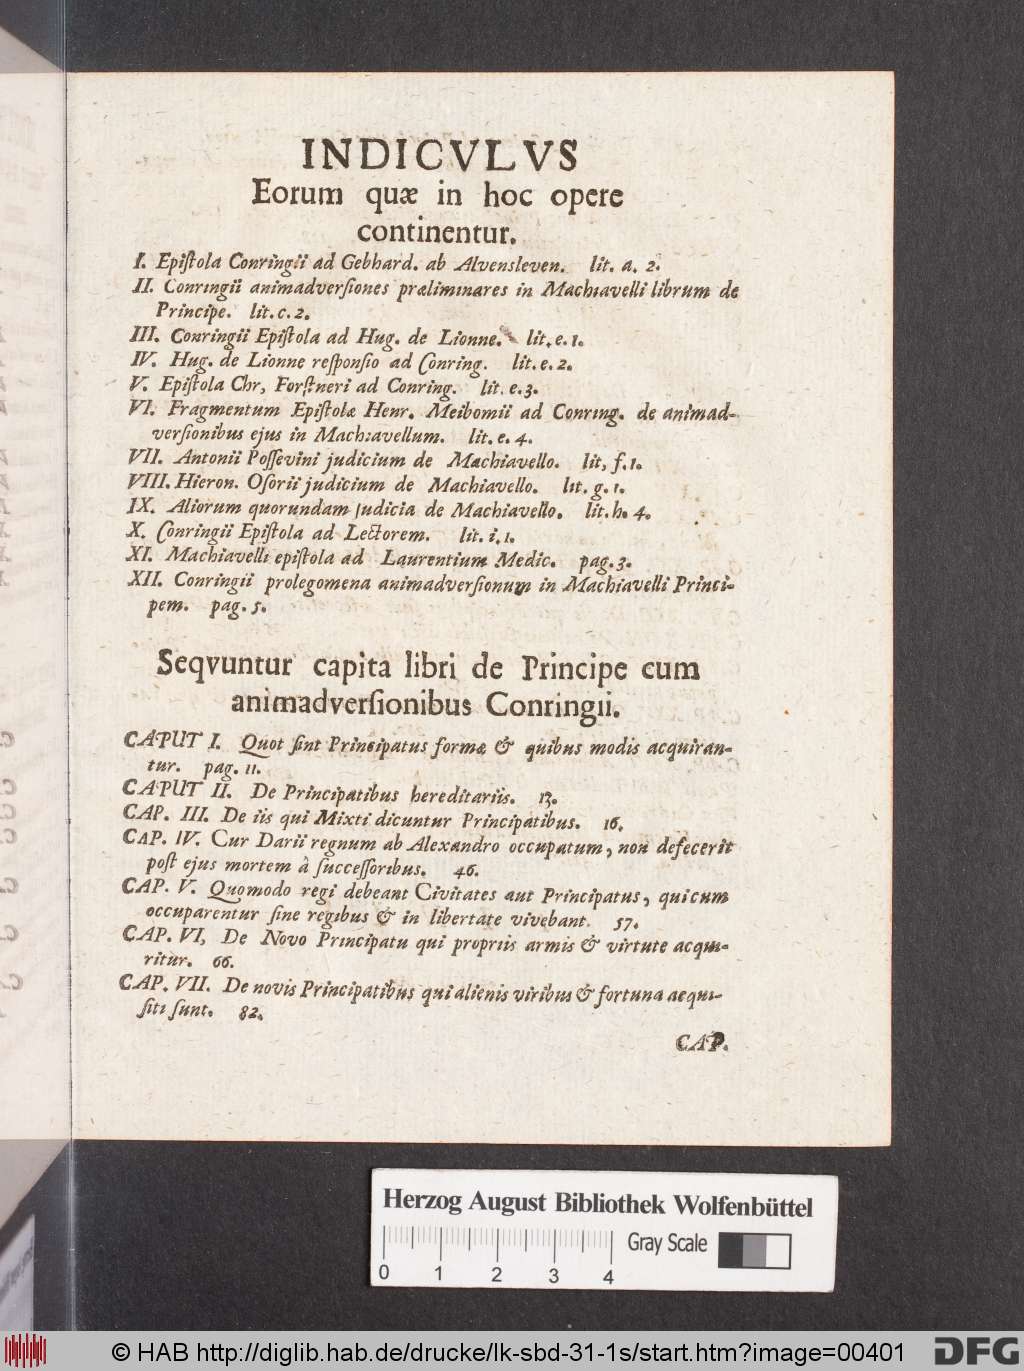 INDICVLVS
Eorum quæ in hoc opere
continentur.
I. Epiſtola Conringii ad Gebhard. ab Alvensleven. lit. a. 2.
II. Conringii animadverſiones præliminares in Machiavelli librum de
Principe. lit. c. 2.
III. Conringii Epiſtola ad Hug. de Lionne. lit. e. 1.
IV. Hug. de Lionne reſponſio ad Conring. lit. e. 2.
V. Epiſtola Chr, Forſtneri ad Conring. lit. e. 3.
VI. Fragmentum Epiſtolæ Henr. Meibomii ad Conring. de animad-
verſionibus ejus in Machiavellum. lit. e. 4.
VII. Antonii Poſſevini judicium de Machiavello. lit, f. 1.
VIII. Hieron. Oſorii judicium de Machiavello. lit. g. 1.
IX. Aliorum quorundam judicia de Machiavello. lit. h. 4.
X. Conringii Epiſtola ad Lectorem. lit. i. 1.
XI. Machiavelli epiſtola ad Laurentium Medic. pag. 3.
XII. Conringii prolegomena animadverſionum in Machiavelli Princi-
pem. pag. 5.
Seqvuntur capita libri de Principe cum
animadverſionibus Conringii.
CAPUT I. Quot ſint Principatus formæ & quibus modis acquiran-
tur. pag. 11.
CAPUT II. De Principatibus hereditariis. 13.
CAP. III. De iis qui Mixti dicuntur Principatibus. 16.
CAP. IV. Cur Darii regnum ab Alexandro occupatum, non defecerit
poſt ejus mortem à ſucceſſoribus. 46.
CAP. V. Quomodo regi debeant Civitates aut Principatus, qui cum
occuparentur ſine regibus & in libertate vivebant. 57.
CAP. VI, De Novo Principatu qui propriis armis & virtute acqui-
ritur. 66.
CAP. VII. De novis Principatibus qui alienis viribus & fortuna acqui-
ſiti ſunt. 82.
CAP.
Herzog August Bibliothek Wolfenbüttel
Gray Scale
0 1 2 3 4
© HAB http://diglib.hab.de/drucke/lk-sbd-31-1s/start.htm?image=00401
DFG